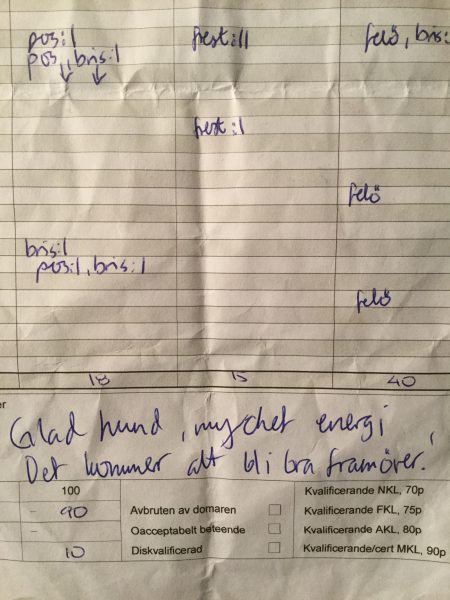 pos:1 fest:11 felö, bris:
pos, bris:1
fest:1
felö
bris:1
pos:1, bris:1
felö
18 15 40
er
Glad hund, mychet energi,
Det kommer att bli bra framöver.
100 Kvalificerande NKL, 70p
- 90 Avbruten av domaren Kvalificerande FKL, 75p
- Oacceptabelt beteende Kvalificerande AKL, 80p
10 Diskvalificerad Kvalificerande/cert MKL, 90p